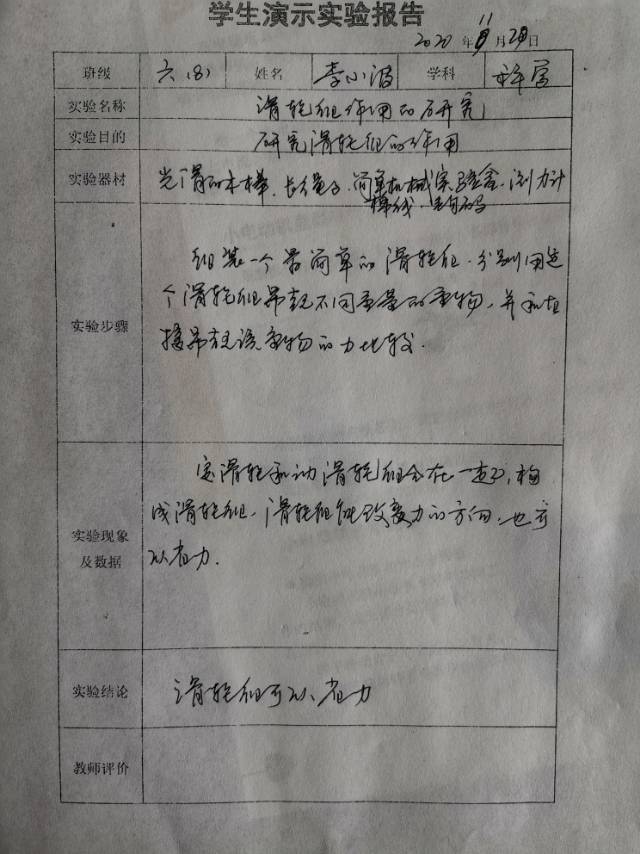 学生演示实验报告
2020年11月20日
班级 六（8） 姓名 李小波 学科 科学
实验名称 滑轮组作用的研究
实验目的 研究滑轮组的作用
实验器材 光滑的木棒、长绳子、简单机械实验盒、测力计
挂线、钩码
实验步骤
组装一个最简单的滑轮组，分别用这
个滑轮组吊起不同重量的重物，并和直
接吊起该重物的力比较.
实验现象
及数据
定滑轮和动滑轮组合在一起，构
成滑轮组，滑轮组能改变力的方向，也可
以省力.
实验结论 滑轮组可以省力
教师评价